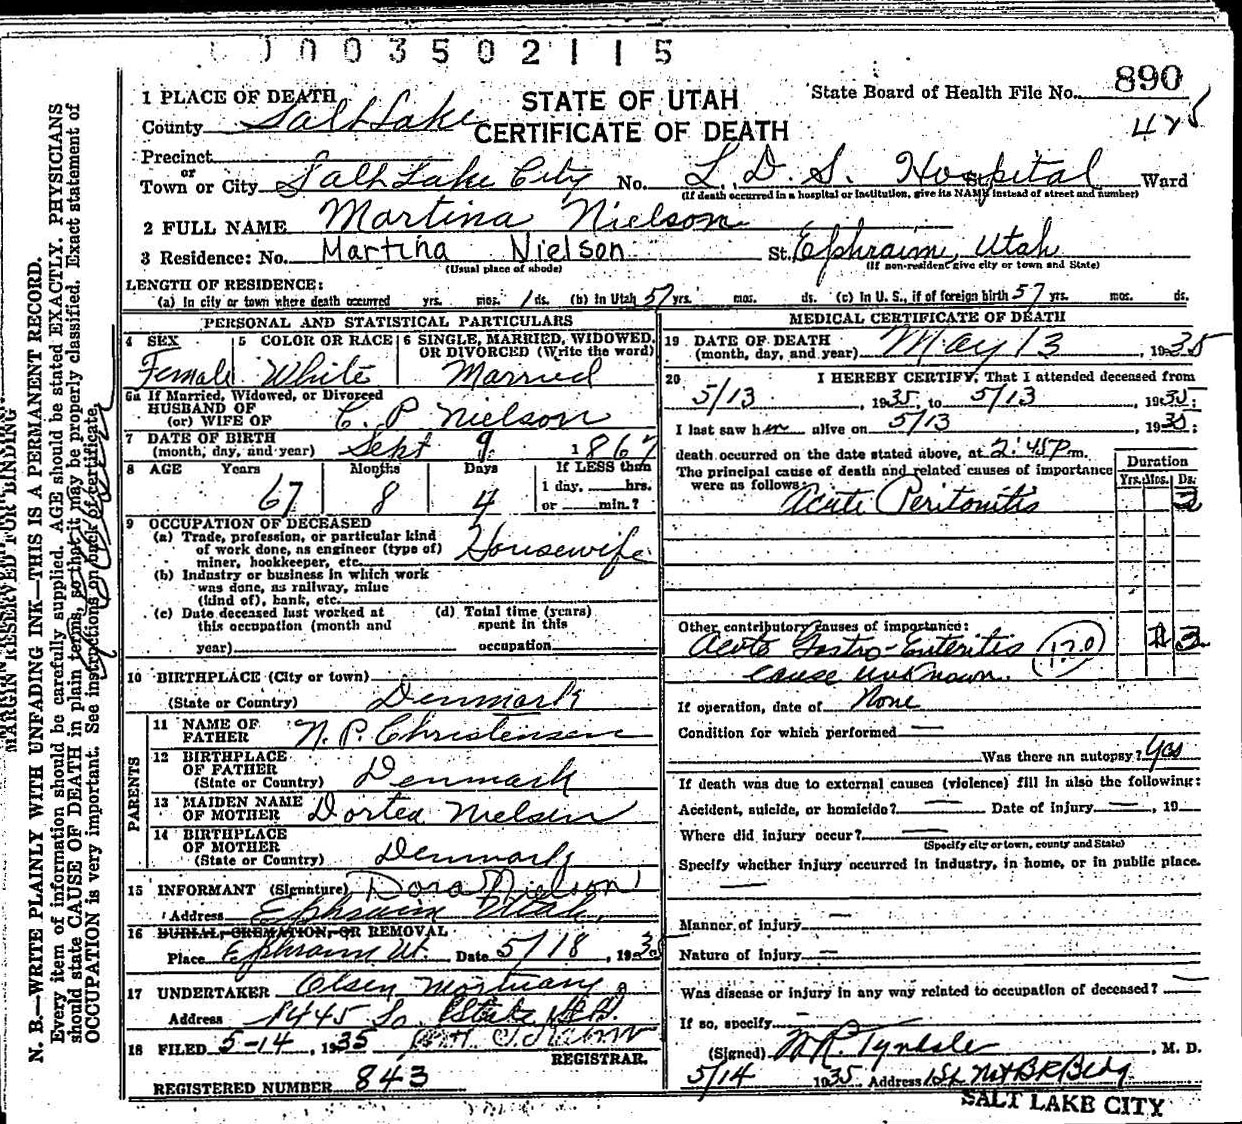 0003502115
890
1 PLACE OF DEATH
STATE OF UTAH
State Board of Health File No.
County Salt Lake
CERTIFICATE OF DEATH
425
Precinct
or
Town or City Salt Lake City No. L. D. S. Hospital St., Ward
(If death occurred in a hospital or institution, give its NAME instead of street and number)
2 FULL NAME Martina Nielson
3 Residence: No. Martina Nielson St. Ephraim, Utah
(Usual place of abode) (If non-resident give city or town and State)
LENGTH OF RESIDENCE:
(a) In city or town where death occurred yrs. mos. 1 ds. (b) In Utah 57 yrs. mos. ds. (c) In U. S., if of foreign birth 57 yrs. mos. ds.
PERSONAL AND STATISTICAL PARTICULARS
4 SEX 5 COLOR OR RACE 6 SINGLE, MARRIED, WIDOWED, OR DIVORCED (Write the word)
Female White Married
6a If Married, Widowed, or Divorced
HUSBAND OF
(or) WIFE OF C. P Nielson
7 DATE OF BIRTH
(month, day, and year) Sept 9 1867
8 AGE Years Months Days If LESS than
67 8 4 1 day, hrs.
or min.?
9 OCCUPATION OF DECEASED
(a) Trade, profession, or particular kind
of work done, as engineer (type of)
miner, bookkeeper, etc. Housewife
(b) Industry or business in which work
was done, as railway, mine
(kind of), bank, etc.
(c) Date deceased last worked at (d) Total time (years)
this occupation (month and spent in this
year) occupation
10 BIRTHPLACE (City or town)
(State or Country) Denmark
PARENTS
11 NAME OF
FATHER N. P. Christensen
12 BIRTHPLACE
OF FATHER
(State or Country) Denmark
13 MAIDEN NAME
OF MOTHER Dortea Nielsen
14 BIRTHPLACE
OF MOTHER
(State or Country) Denmark
15 INFORMANT (Signature) Dora Nielson
Address Ephraim Utah
16 BURIAL, CREMATION, OR REMOVAL
Place Ephraim Ut. Date 5/18, 1935
17 UNDERTAKER Olsen Mortuary
Address 1445 So. State
18 FILED 5-14, 1935
REGISTRAR.
REGISTERED NUMBER 843
MEDICAL CERTIFICATE OF DEATH
19 DATE OF DEATH
(month, day, and year) May 13, 1935
20 I HEREBY CERTIFY, That I attended deceased from
5/13, 1935, to 5/13, 1935;
I last saw her alive on 5/13, 1935;
death occurred on the date stated above, at 2:45 P.m.
The principal cause of death and related causes of importance
were as follows: Duration
Yrs. Mos. Ds.
Acute Peritonitis 3
Other contributory causes of importance:
Acute Gastro-Enteritis 120 3
cause unknown.
If operation, date of None
Condition for which performed —
Was there an autopsy? Yes
If death was due to external causes (violence) fill in also the following:
Accident, suicide, or homicide? — Date of injury —, 19
Where did injury occur? —
(Specify city or town, county and State)
Specify whether injury occurred in industry, in home, or in public place.
—
Manner of injury —
Nature of injury —
Was disease or injury in any way related to occupation of deceased? —
If so, specify —
(Signed) W R. Tyndale, M. D.
5/14 1935 Address 1st Nat Bk Bldg
SALT LAKE CITY
MARGIN RESERVED FOR BINDING
N. B.—WRITE PLAINLY WITH UNFADING INK—THIS IS A PERMANENT RECORD.
Every item of information should be carefully supplied. AGE should be stated EXACTLY. PHYSICIANS
should state CAUSE OF DEATH in plain terms, so that it may be properly classified. Exact statement of
OCCUPATION is very important. See instructions on back of certificate.